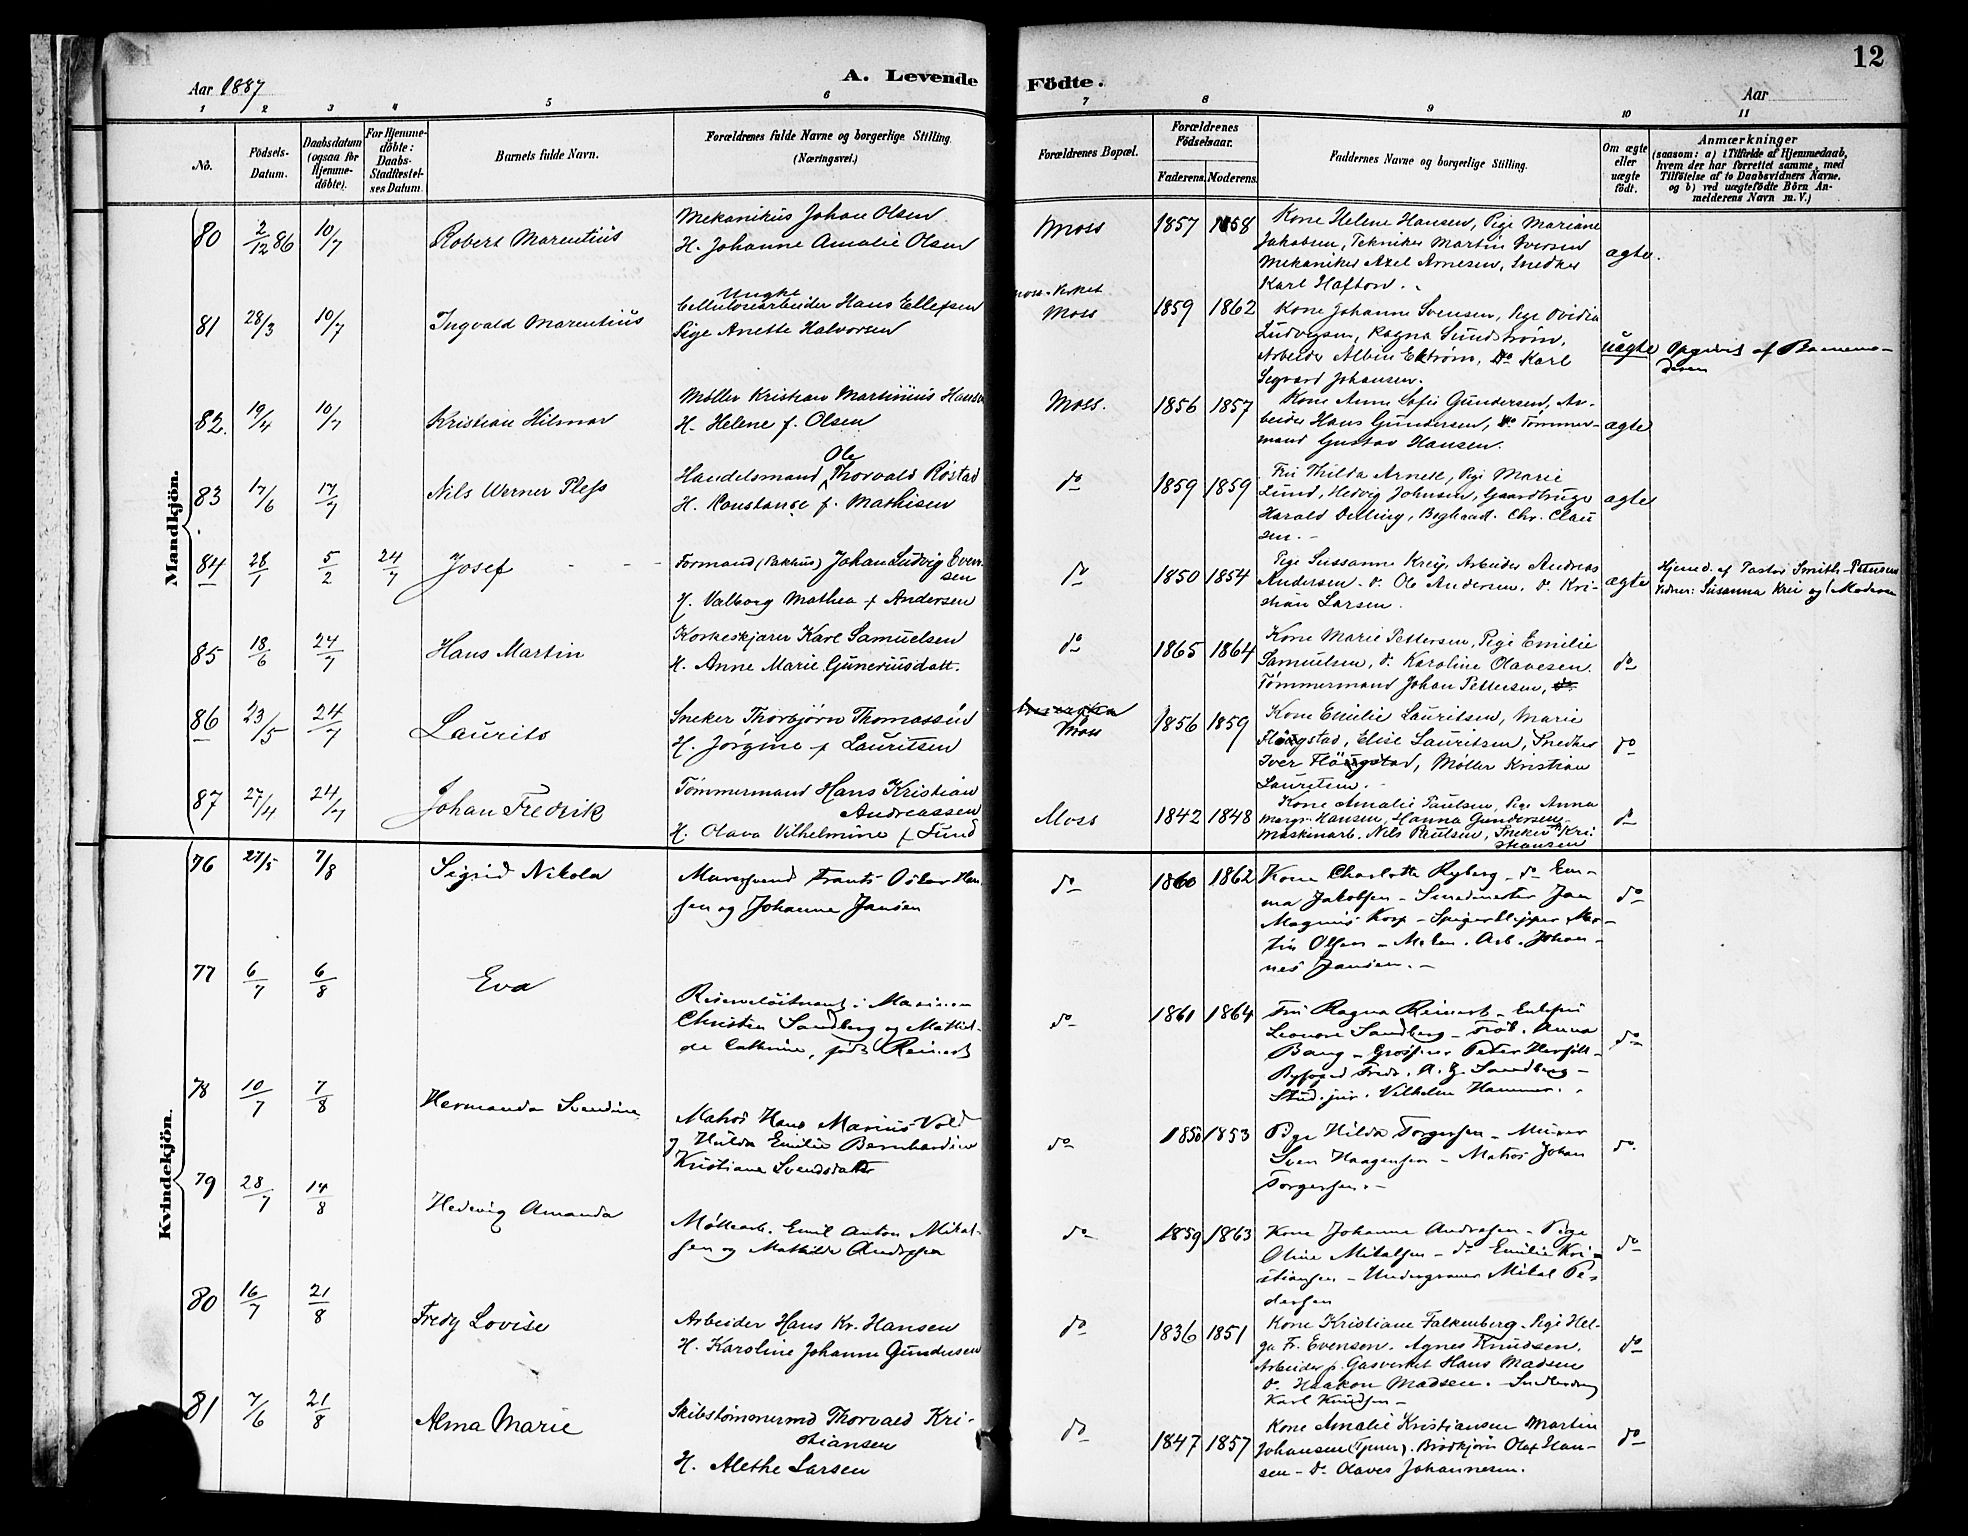 12
A. Levende Födte.
Aar 1887
Aar
1 2 3 4 5 6 7 8 9 10 11
No.
Födsels-Datum.
Daabsdatum (ogsaa for Hjemmedöbte).
For Hjemmedöbte: Daabs-Stadfæstelses Datum.
Barnets fulde Navn.
Forældrenes fulde Navne og borgerlige Stilling (Næringsvei.)
Forældrenes Bopæl.
Forældrenes Födselsaar.
Faderens. Moderens.
Faddernes Navne og borgerlige Stilling.
Om ægte eller uægte födt.
Anmærkninger
(saasom: a) i Tilfælde af Hjemmedaab,
hvem der har forrettet samme, med
Tilföielse af to Daabsvidners Navne.
og b) ved uægtefödte Börn An-
melderens Navn m. V.)
Mandkjön.
80 2/12 86 10/7 Robert Marentius
Mekanikus Johan Olsen
H. Johanne Amalie Olsen
Moss 1857 1858
Kone Helene Hansen, Pige Mariane
Jakobsen, Tekniker Martin Iversen
Mekaniker Axel Arnesen, Snedker
Karl Hafton.
ægte.
81 28/3 10/7 Ingvald Marentius
Ungke
Cellulosearbeider Hans Ellefsen
Pige Anette Halvorsen
Moss 1859 1862
Kone Johanne Svensen, Pige Ovidia
Ludvigsen, Ragna Sundstrøm,
Arbeider Albin Ekstrøm, Do Karl
Segvard Johansen.
uægte
Opgivet af Barnemo-
deren
82. 19/4 10/7 Kristian Hilmar
Møller Kristian Martinius Hansen
H. Helene f. Olsen
Moss. 1856 1857
Kone Anne Sofie Gundersen, Ar-
beider Hans Gundersen, Do Tømmer-
mand Gustav Hansen.
ægte
83 17/6 17/7 Nils Werner Pless
Ole
Handelsmand Thorvald Røstad
H. Konstanse f. Mathisen
do 1859 1859
Fru Thilda Arnell, Pige Marie
Lund, Hedvig Johnsen, Gaardbruger
Harald Delling, Boghand. Chr. Clau
sen.
ægte
84 28/1 5/2 24/7 Josef
Formand (Pakhus) Johan Ludvig Even
sen
H. Valborg Mathea f Andersen
do 1850 1854
Pige Sussanne Krey, Arbeider Andreas
Andersen. d. Ole Andersen. d. Kri-
stian Larsen.
ægte
Hjemd. af Pastor Smith-Petersen
Vidner: Susanna Krei og Moderen
85 18/6 24/7 Hans Martin
Korkeskjærer Karl Samuelsen
H. Anne Marie Guneriusdatt.
do 1865 1864
Kone Marie Pettersen, Pige Emilie
Samuelsen, d. Karoline Olavesen.
Tømmermand Johan Pettersen, do
do
86 23/5 24/7 Laurits
Sneker Thorbjørn Thomassen
H. Jørgine f Lauritsen
Moss 1856 1859
Kone Emilie Lauritsen, Marie
Flougstad, Elise Lauritsen, Snedker
Iver Flougstad, Møller Kristian
Lauritsen.
do
87 27/4 24/7 Johan Fredrik
Tømmermand Hans Kristian
Andreassen
H. Olava Vilhelmine f Lund
Moss 1842 1848
Kone Amalie Paulsen, Pige Anna
Margr. Hansen, Hanna Gundersen
Maskinarb. Nils Paulsen, Sneker Kri
stiansen
do
Kvindekjön.
76 27/5 7/8 Sigrid Nikola
Marsvend Frants Oskar Han-
sen og Johanne Jansen
do 1860 1862
Kone Charlotte Ryberg - do Em-
ma Jakobsen - Smedmester Jan
Magnus Korp - Spigerklipper Mar-
tin Olsen - Mekan. Arb. Johan-
nes Jansen. -
do
77 6/7 6/8 Eva
Reserveløitnant i Marinen
Christen Sandberg og Mathil-
de Cathrine, født Reinert
do 1861 1864
Fru Ragna Reinert - Enkefru
Leonore Sandberg - Frøk. Anna
Bang - Grosserer Peter Herföll -
Byfoged Fredr. A. G. Sandberg -
Stud. jur. Vilhelm Hammer.
do
78 10/7 7/8 Hermanda Svendine
Matros Hans Marius Vold
og Hulda Emilie Bernhardine
Kristiane Svendsdatter
do 1850 1853
Pige Hilda Torgersen - Murer
Sven Haagensen - Matros Johan
Torgersen. -
do
79 28/7 14/8 Hedevig Amanda
Møllearb. Emil Anton Mikal-
sen og Mathilde Andresen
do 1859 1863
Kone Johanne Andresen - Pige
Oline Mikalsen - do Emilie Kri-
stiansen - Undergraver Mikal Pe-
dersen
do
80 16/7 21/8 Fredy Lovise
Arbeider Hans Kr. Hansen
H. Karoline Johanne Gundersen
do 1836 1851
Kone Kristiane Falkenberg - Pige Hel-
ga Fr. Evensen. Agnes Knudsen.
Arbeider p. Gasverket Hans Madsen
do. Haakon Madsen.
Karl Knudsen -
do
81 7/6 21/8 Alma Marie
Skibstømmermd Thorvald Kri-
stiansen
H. Alethe Larsen
do 1847 1857
Kone Amalie Kristiansen Martin
Johansen (Tjener). Brødkjører Olaf Han-
sen - do Olaves Johannesen.
do